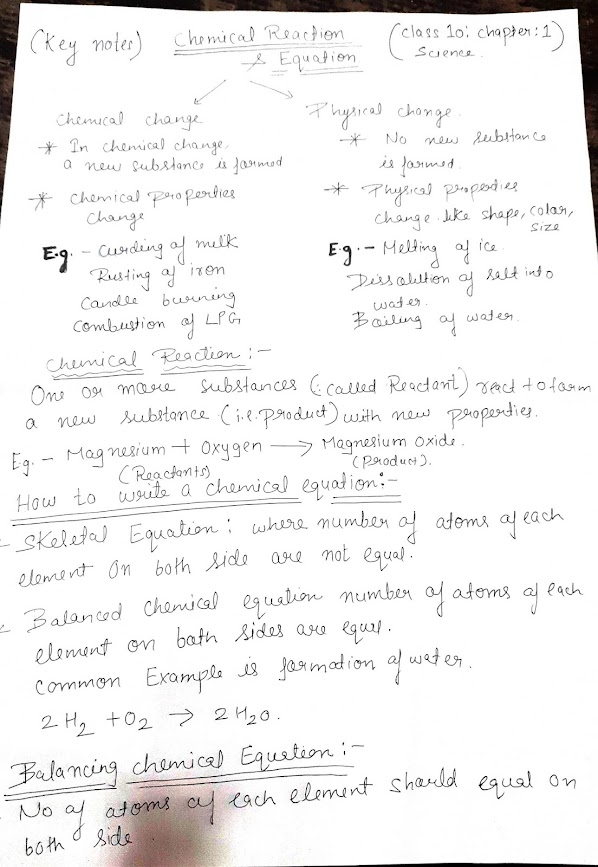 (Key notes) Chemical Reaction (class 10: chapter:1)
& Equation Science
Chemical change
* In chemical change
a new substance is formed
* Chemical properties
change
E.g. - Curding of milk
Rusting of iron
Candle burning
Combustion of LPG
Physical change.
* No new substance
is formed.
* Physical properties
change like shape, color,
size
E.g. - Melting of ice.
Dissolution of salt into
water.
Boiling of water.
Chemical Reaction :-
One or more substances (: called Reactant) react to form
a new substance (i.e. product) with new properties.
Eg. - Magnesium + Oxygen → Magnesium Oxide.
(Reactants) (Product).
How to write a chemical equation:-
- Skeletal Equation : where number of atoms of each
element On both side are not equal.
- Balanced chemical equation number of atoms of each
element on both sides are
common Example is formation of water.
2H₂ + O₂ → 2H₂O.
Balancing chemical Equation :-
- No of atoms of each element should equal on
both side